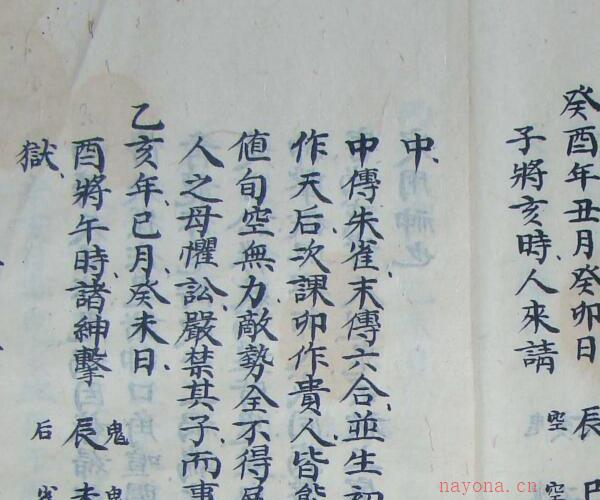 癸酉年丑月癸卯日
子將亥時人來請
空 辰
空
中
中傳朱雀末傳六合並生初
作天后次課卯作貴人皆能
值旬空無力敵勢全不得
人之母懼訟嚴禁其子而事
乙亥年巳月癸未日
酉將午時諸紳擊 鬼
后 辰
鬼
獄
nayona.cn